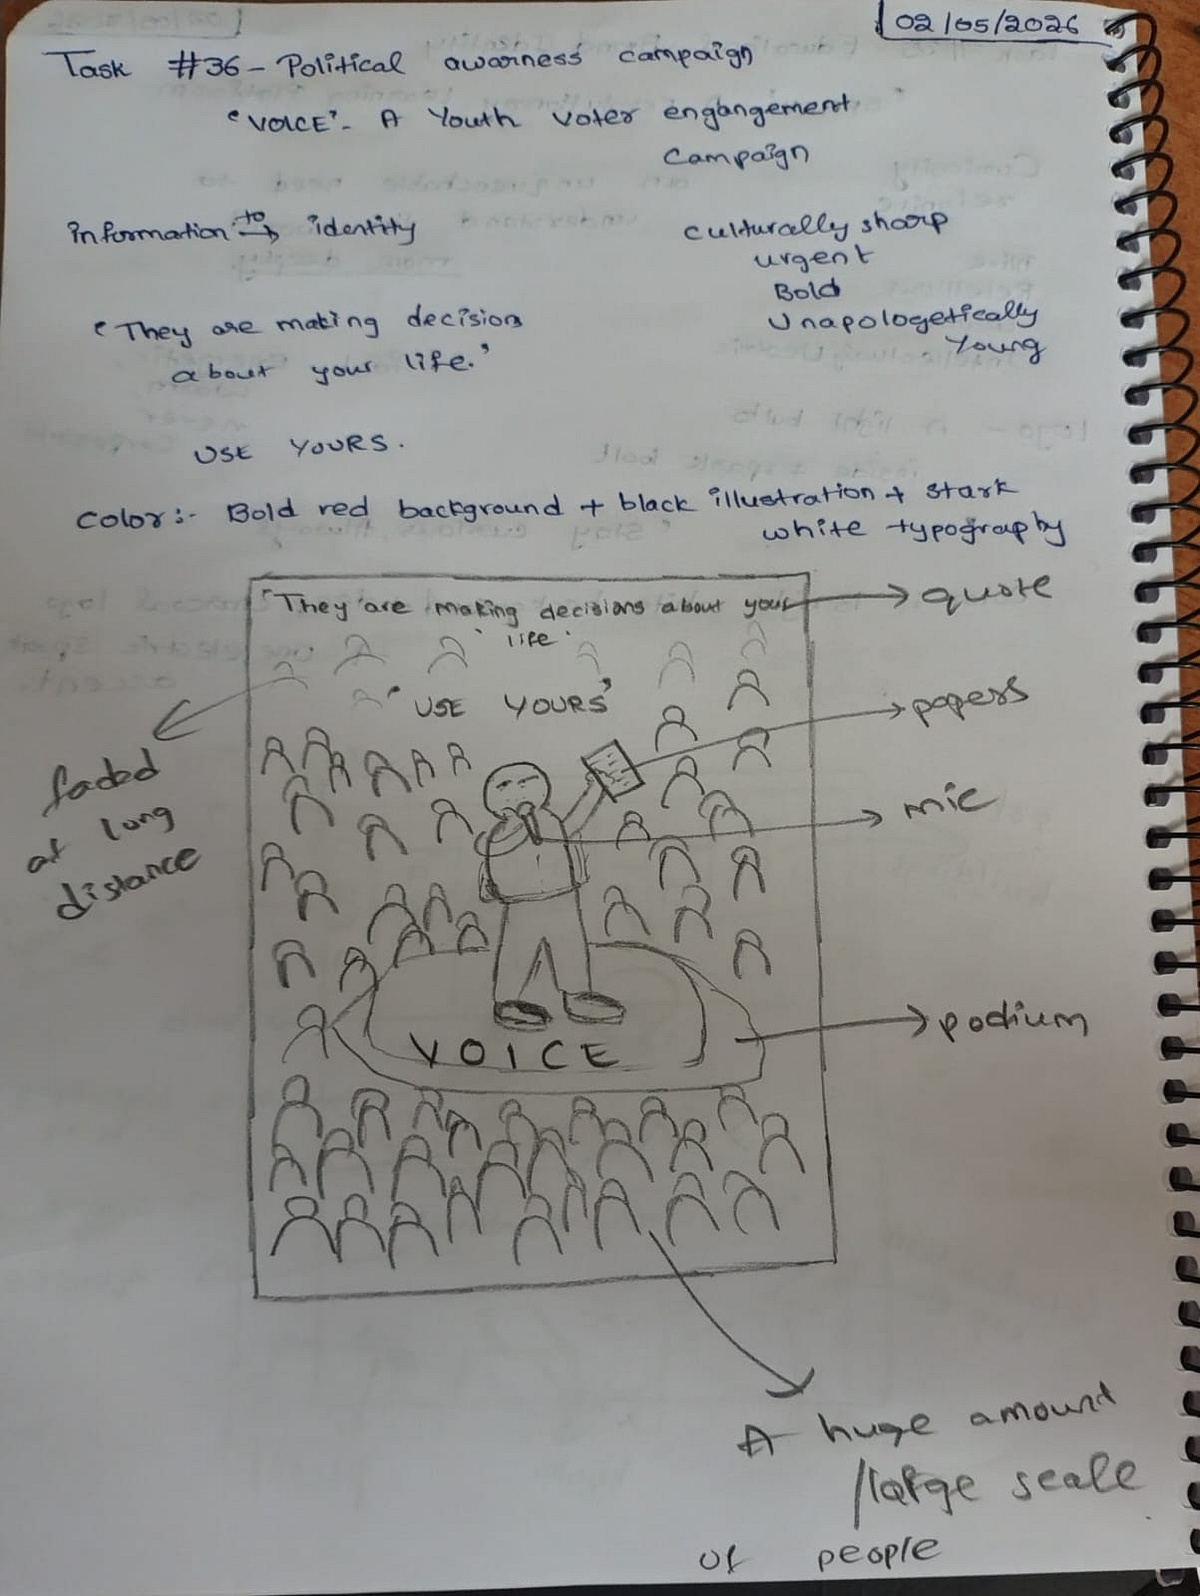 02/05/2026
Task #36 - Political awarness campaign
'VOICE' - A Youth Voter engangement
Campaign
information to → identity
culturally sharp
urgent
Bold
Unapologetically
Young
'They are making decision
about your life.'
USE YOURS.
Color:- Bold red background + black illustration + stark
white typography
"They are making decisions about your
life.
'USE YOURS'
quote
papers
mic
faded
at long
distance
podium
VOICE
A huge amount
/large scale
of people